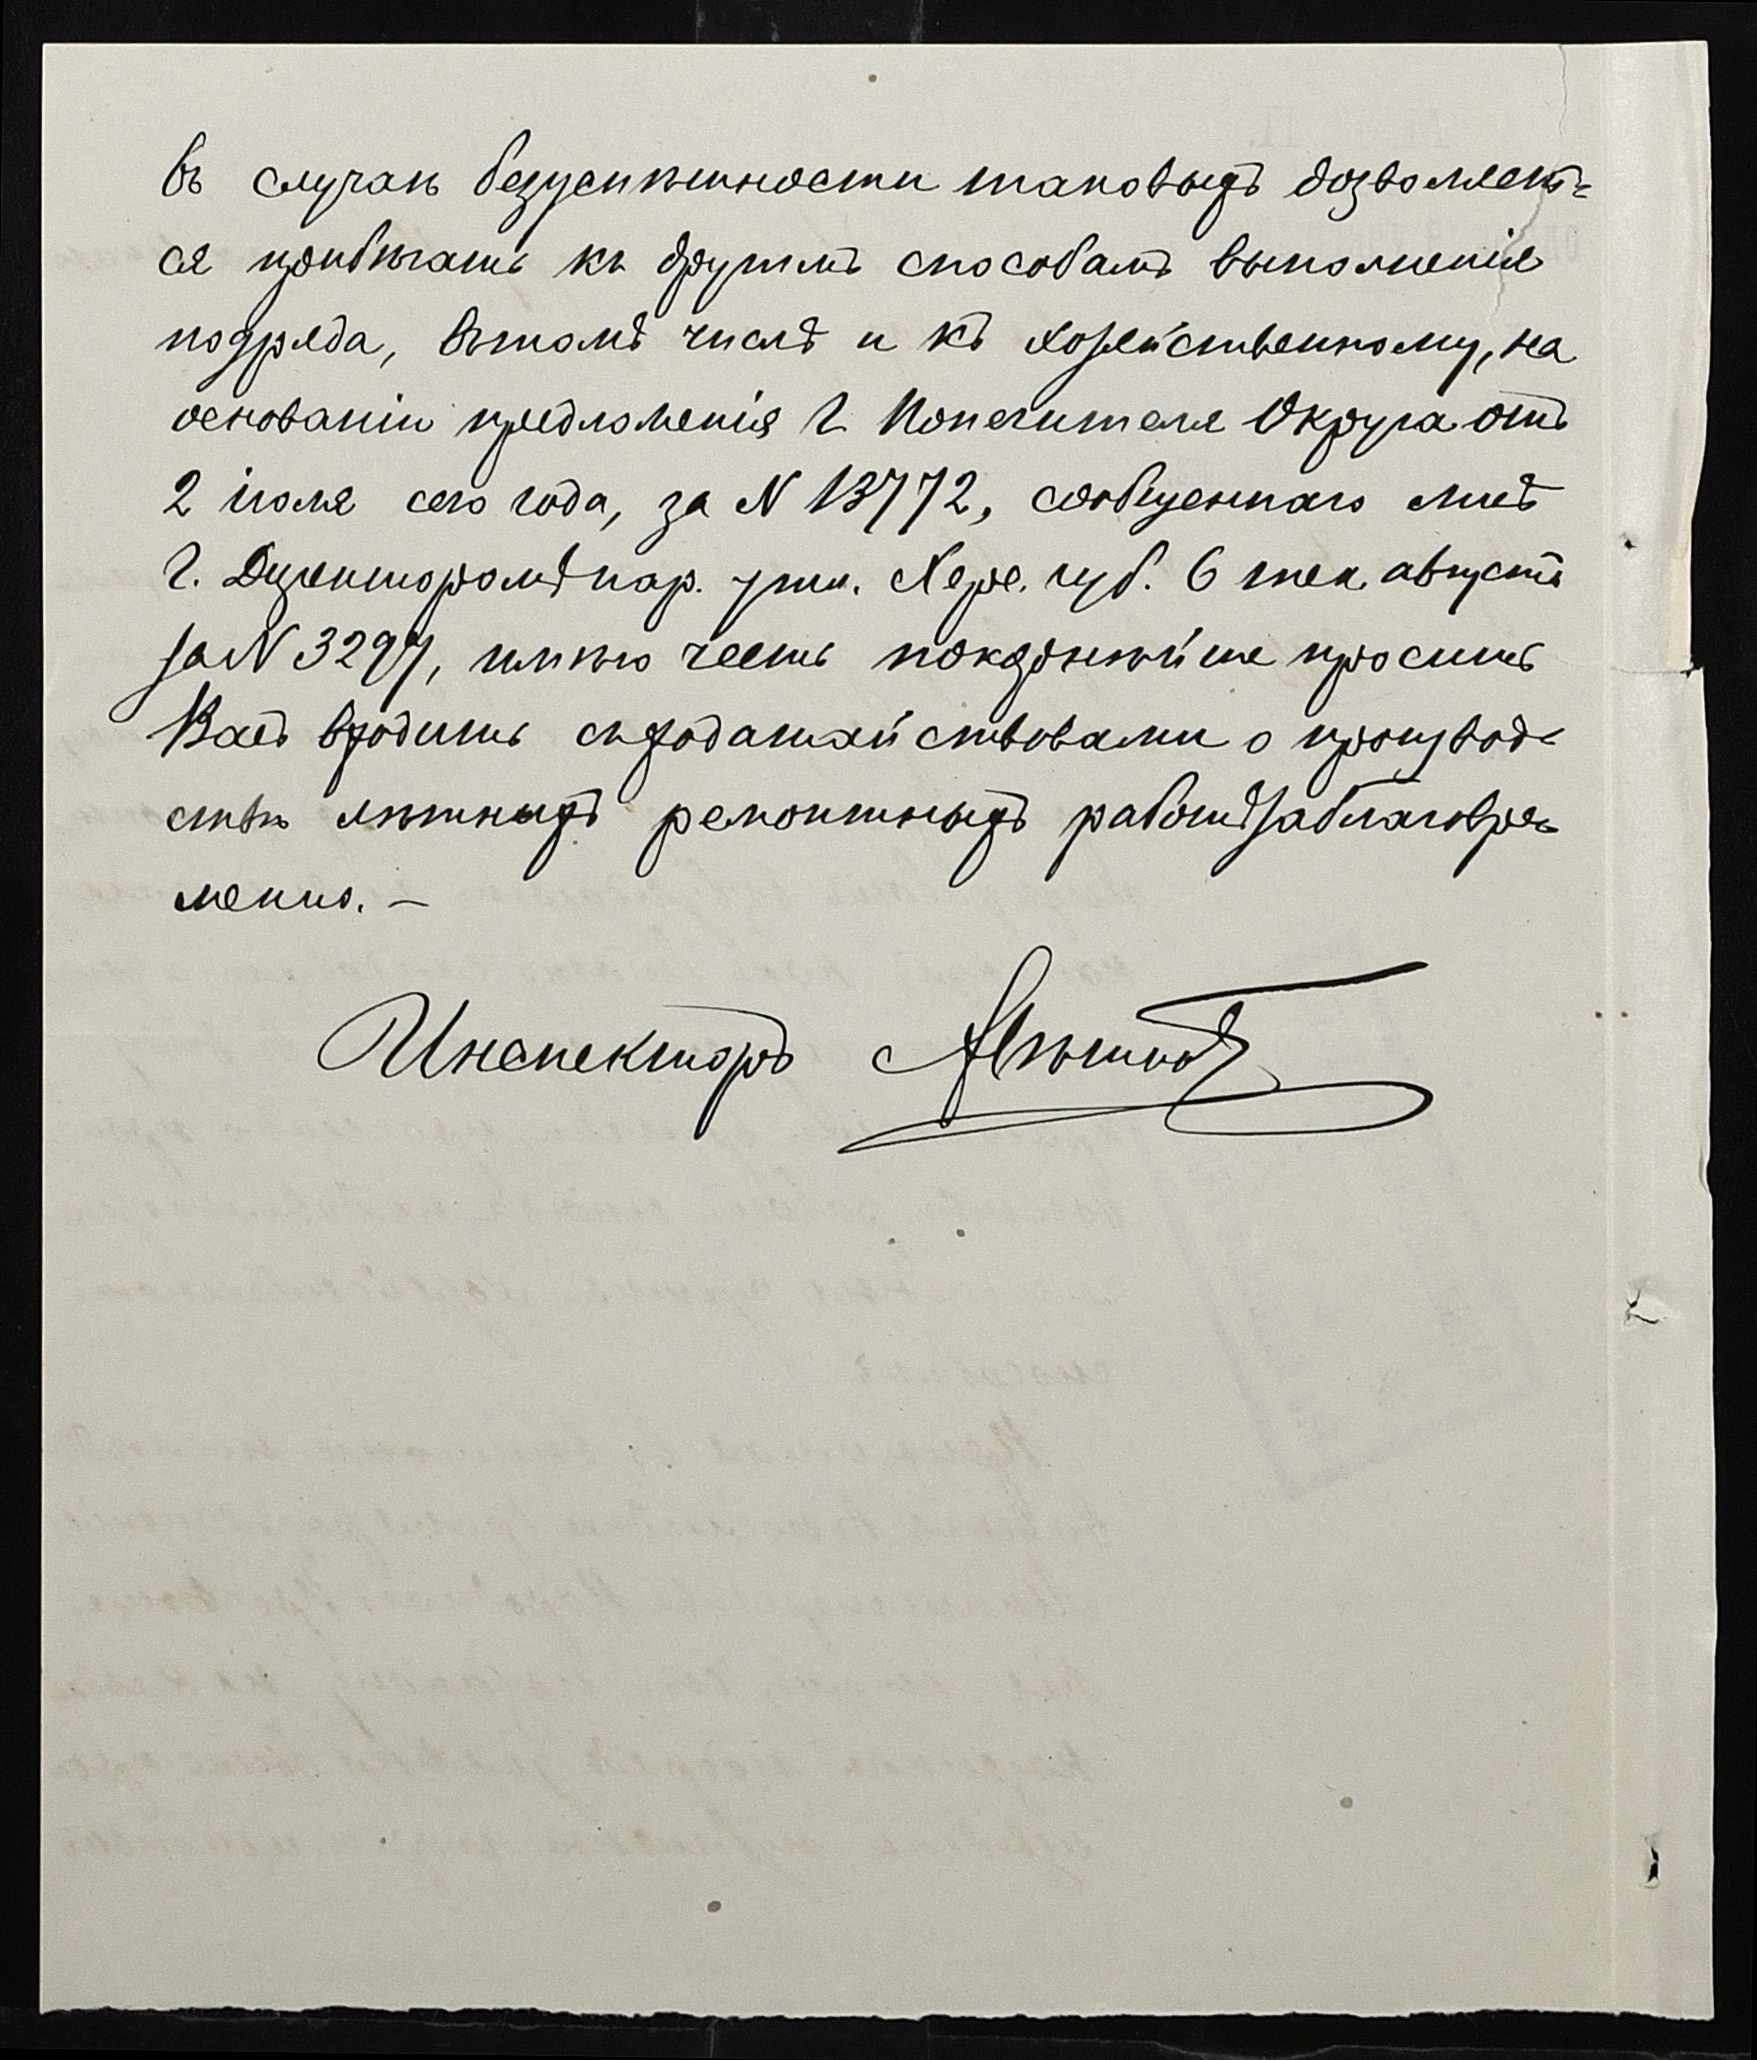 въ случаѣ безуспѣшности таковыхъ дозволяет=
ся прибѣгать къ другимъ способамъ выполненія
подряда, въ томъ числѣ и къ хозяйственному, на
основаніи предложенія Г. Попечителя Округа отъ
2 іюля сего года, за N 13772, сообщеннаго мнѣ
Г. Директоромъ нар. учил. Херс. губ. 6 тек. августа
за N 3297, имѣю честь покорнѣйше просить
Васъ входить съ ходатайствовами о производ-
ствѣ лѣтныхъ ремонтныхъ работъ заблаговре-
менно. –
Инспекторъ